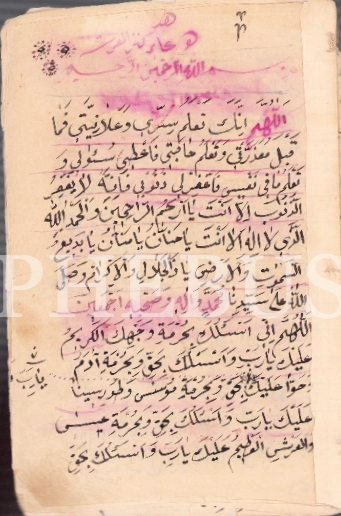 بسم الله الرحمن الرحيم
اللهم انك تعلم سري وعلانيتي فا
قبل معذرتي وتعلم حاجتي فاعطني سئولي و
تعلم ما في نفسي فاغفرلي ذنوبي فانه لا يغفر
الذنوب الا انت يا ارحم الراحمين والحمد لله
الذي لا اله الا انت يا حنان يا منان يا بديع
السموت والارض يا ذوالجلال والاكرام وصل
الله على سيدنا محمد واله وصحبه اجمعين
اللهم اني اسئلك بحرمة وجهك الكريم
عليك يارب واسئلك بحق وبحرمة ادم
وحوا عليك بحق وبحرمة موسى وطورسينا
عليك يارب واسئلك بحق وبحرمة عيسى
والعرش العظيم عليك يارب واسئلك بحق
يارب
PHEBUS